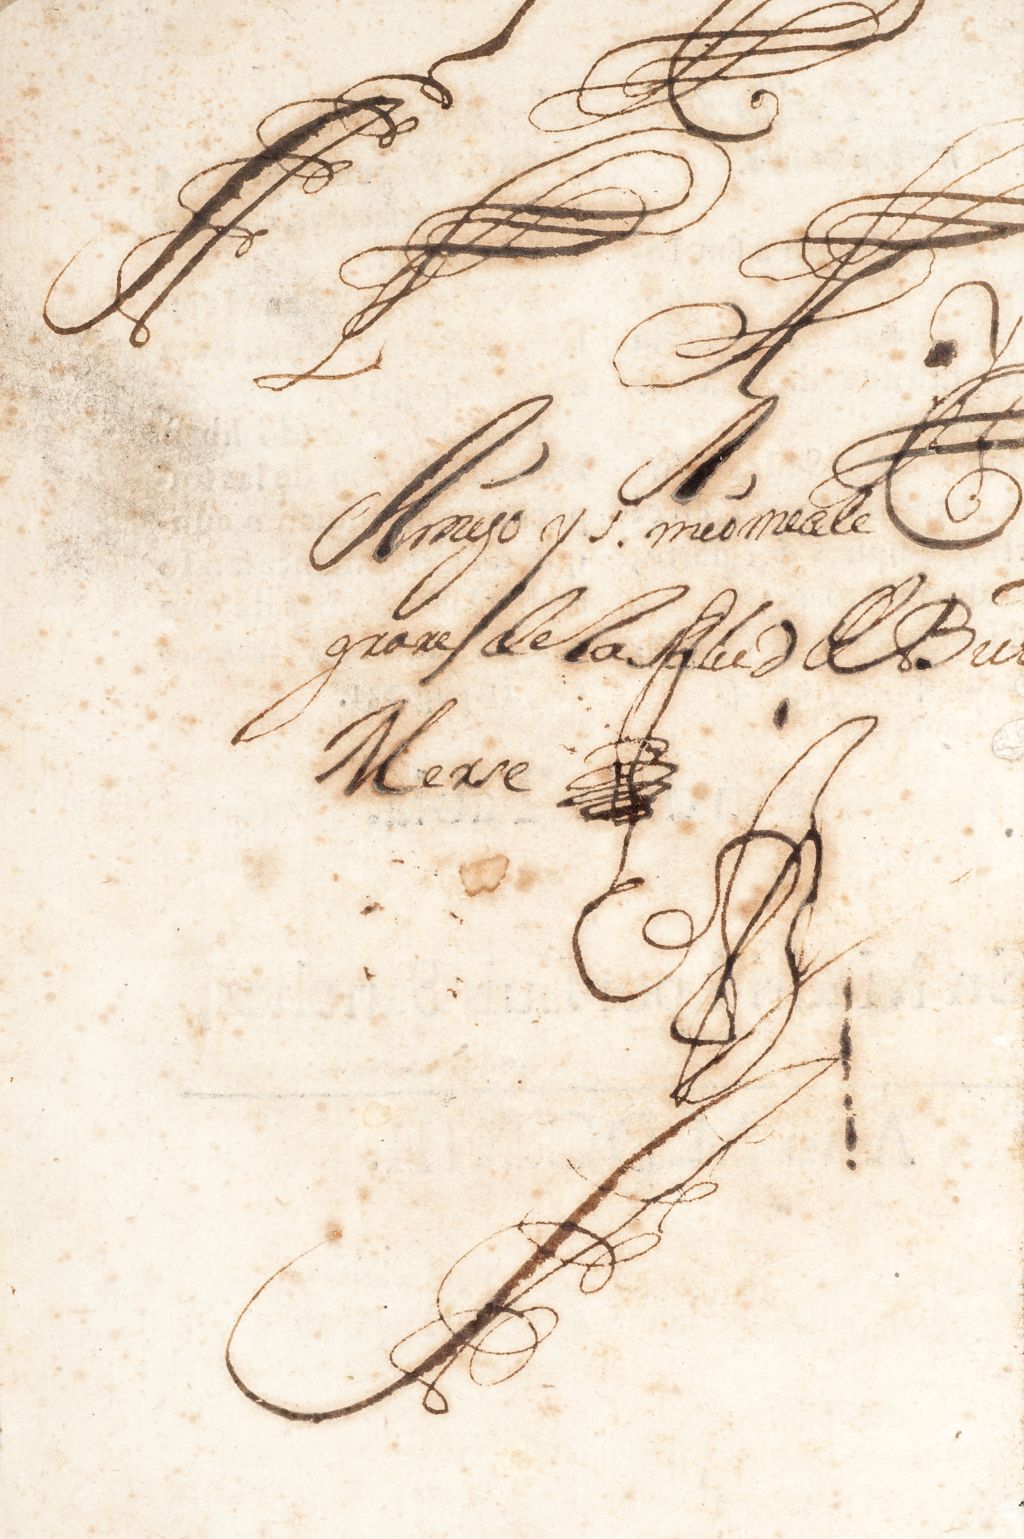 Amigo y s. mio meale
grare de la salud de Bue
Merse